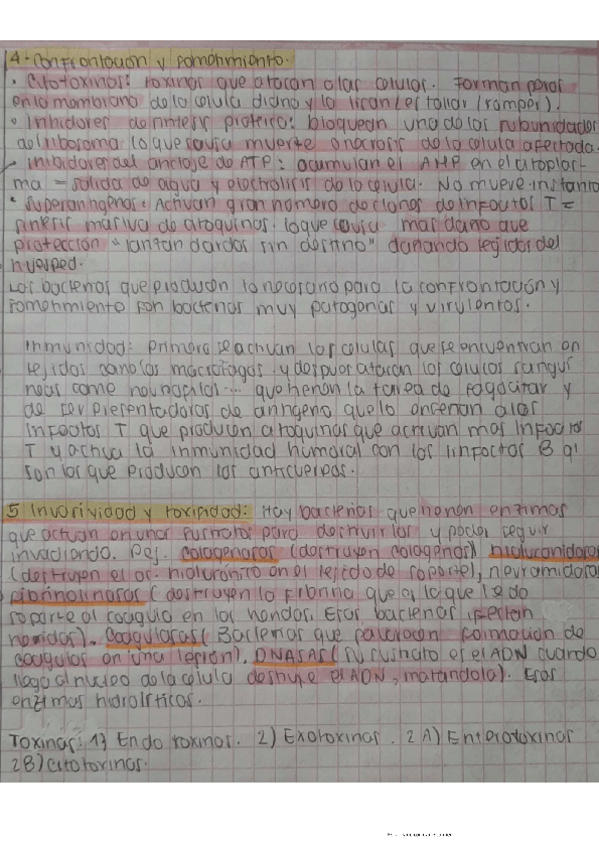 4- Confrontación y sometimiento.
• Citotoxinas: toxinas que atacan a las celulas. Forman poros
en la membrana de la celula diana y la lisan/estallar (romper).
• Inhidores de sintesis proteica: bloquean una de las subunidades
del ribosoma lo que causa muerte o nacrosis de la celula afectada.
• inhibidores del anclaje de ATP: acumulan el AMP en el citoplas-
ma = salida de agua y electrolitos de la celula. No muere instanta
• Superantigenos: Activan gran número de clones de linfocitos T =
sintesis masiva de citoquinas. lo que causa mas daño que
protección "lanzan dardos sin destino" dañando tejidos del
huesped.
Las bacterias que producen lo necesario para la confrontación y
sometimiento son bacterias muy patogenas y virulentas.
Inmunidad: Primero se activan las celulas que se encuentran en
tejidos como los macrofagos y despues atacan las celulas sangui
neas como neutrofilos... que tienen la tarea de fagocitar y
de ser presentadoras de antigeno que lo enseñan a los
linfocitos T que producen citoquinas que activan mas linfocitos
T y activa la inmunidad humoral con los linfocitos B q'
son los que producen los anticuerpos.
5 Invasividad y toxicidad: Hay bacterias que tienen enzimas
que actuan en unos sustratos para destruirlos y poder seguir
invadiendo. Pej. Colagenasas (destruyen colagenas) hialuronidasas
(destruyen el ac. hialurónico en el tejido de soporte), neuramidasas
fibrinolinasas (destruyen la fibrina que es lo que le da
soporte al coagulo en las heridas. Esas bacterias afectan
heridas). Coagulasas (Bacterias que favorecen formación de
coagulos en una lesión). DNASAS (su sustrato es el ADN cuando
llega al nucleo de la celula destruye el ADN, matandola). Esas
enzimas hidroliticas.
Toxinas: 1) Endotoxinas. 2) Exotoxinas. 2A) Enterotoxinas
2B) citotoxinas.